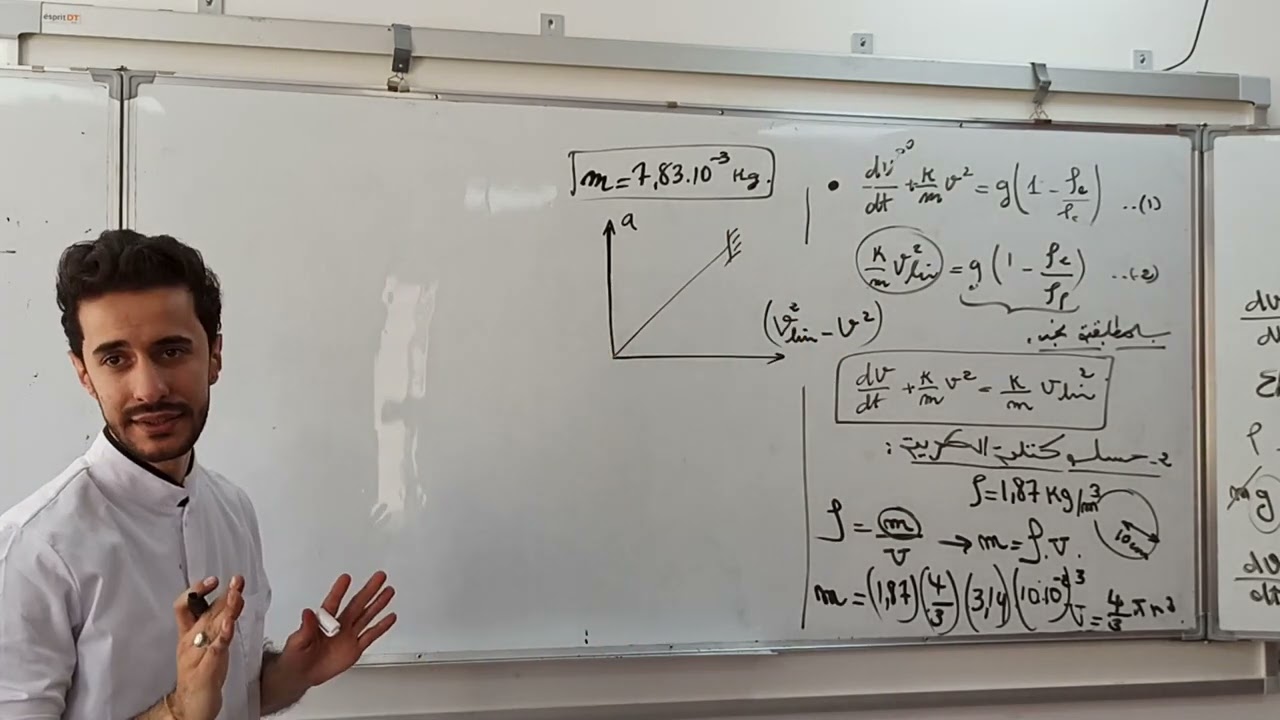 ésprit DT
m = 7,83.10⁻³ Kg.
a
(v²lim - v²)
• dv/dt + K/m v² = g(1 - ρe/ρc) ...(1)
K/m v²lim = g(1 - ρe/ρp) ...(2)
بالمطابقة نجد.
dv/dt + K/m v² = K/m vlim²
2- حساب كتلة الكرية:
ρ = 1,87 Kg/m³
10cm
ρ = m/v → m = ρ.v.
m = (1,87)(4/3)(3,14)(10.10⁻²)³
v = 4/3 π r³
dv
ρ
mg
dv/dt